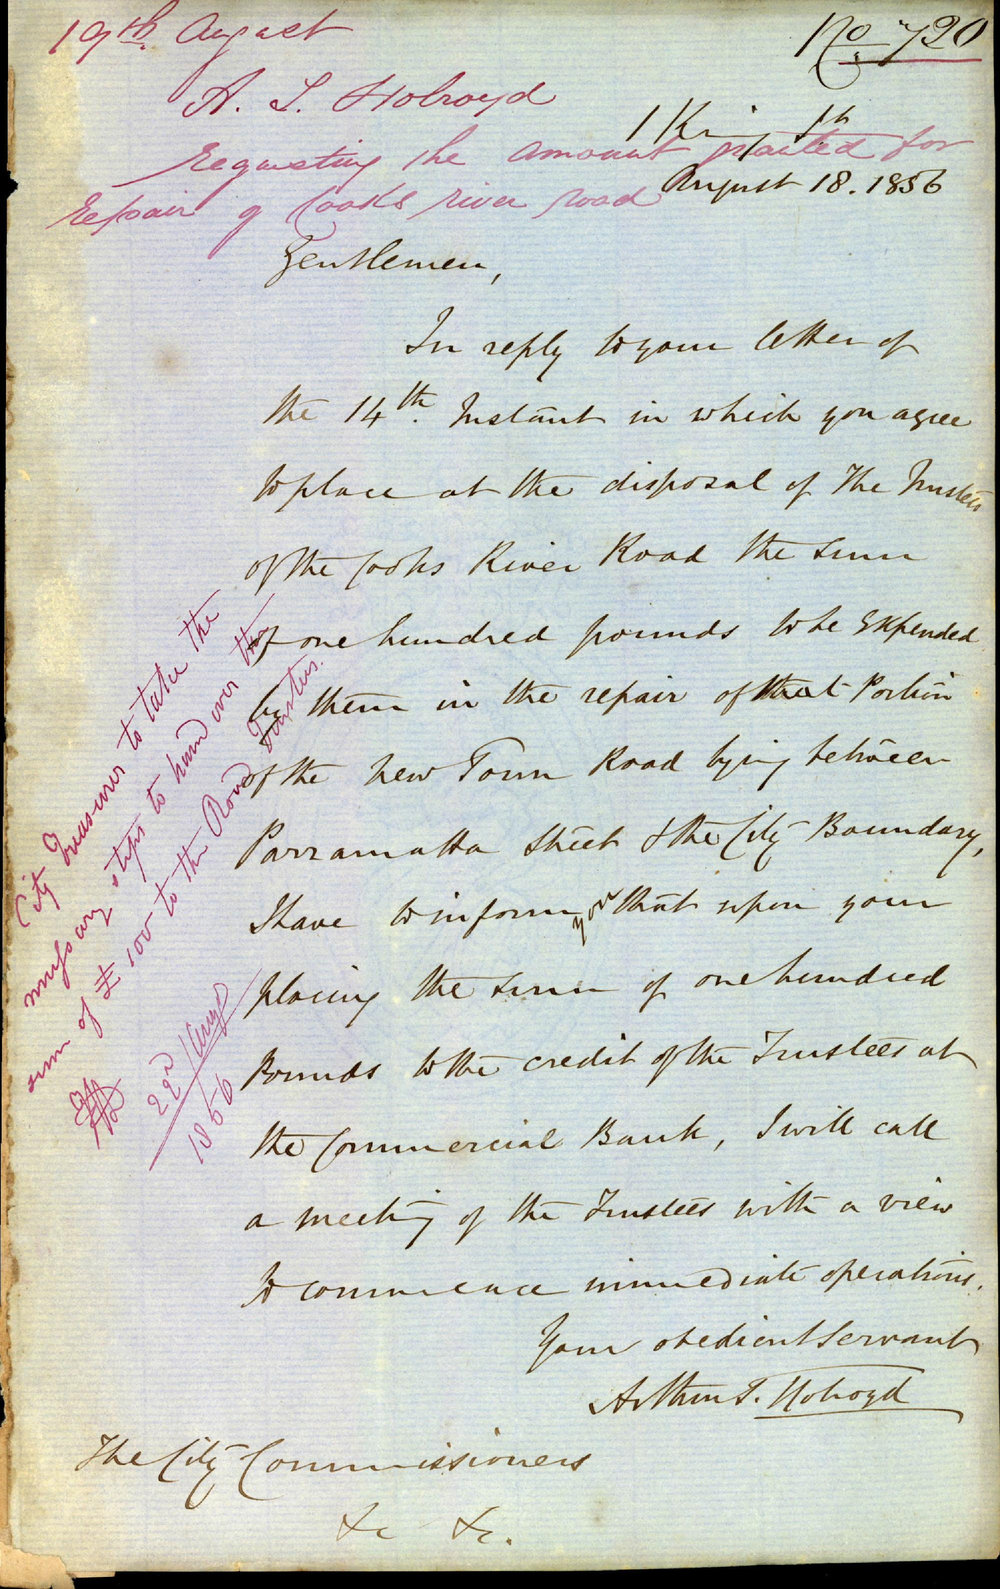 19th. August
No 720
A. T. Holroyd
1 King St
Requesting the amount granted for
August 18. 1856
repair of Cooks river road
Gentlemen,
In reply to your letter of
the 14th. Instant in which you agree
to place at the disposal of The Trustees
of the Cooks River Road the Sum
of one hundred pounds to be Expended
by them in the repair of that Portion
of the New Town Road lying between
Parramatta Street & the City Boundary,
I have to inform you that upon your
placing the sum of one hundred
Pounds to the credit of the Trustees at
the Commercial Bank, I will call
a meeting of the Trustees with a view
to commence immediate operations.
Your obedient Servant
Arthur T. Holroyd
The City Commissioners
&c &c.
City Treasurer to take the
necessary steps to hand over the
sum of £100 to the Road Trustees.
22nd Augt
1856